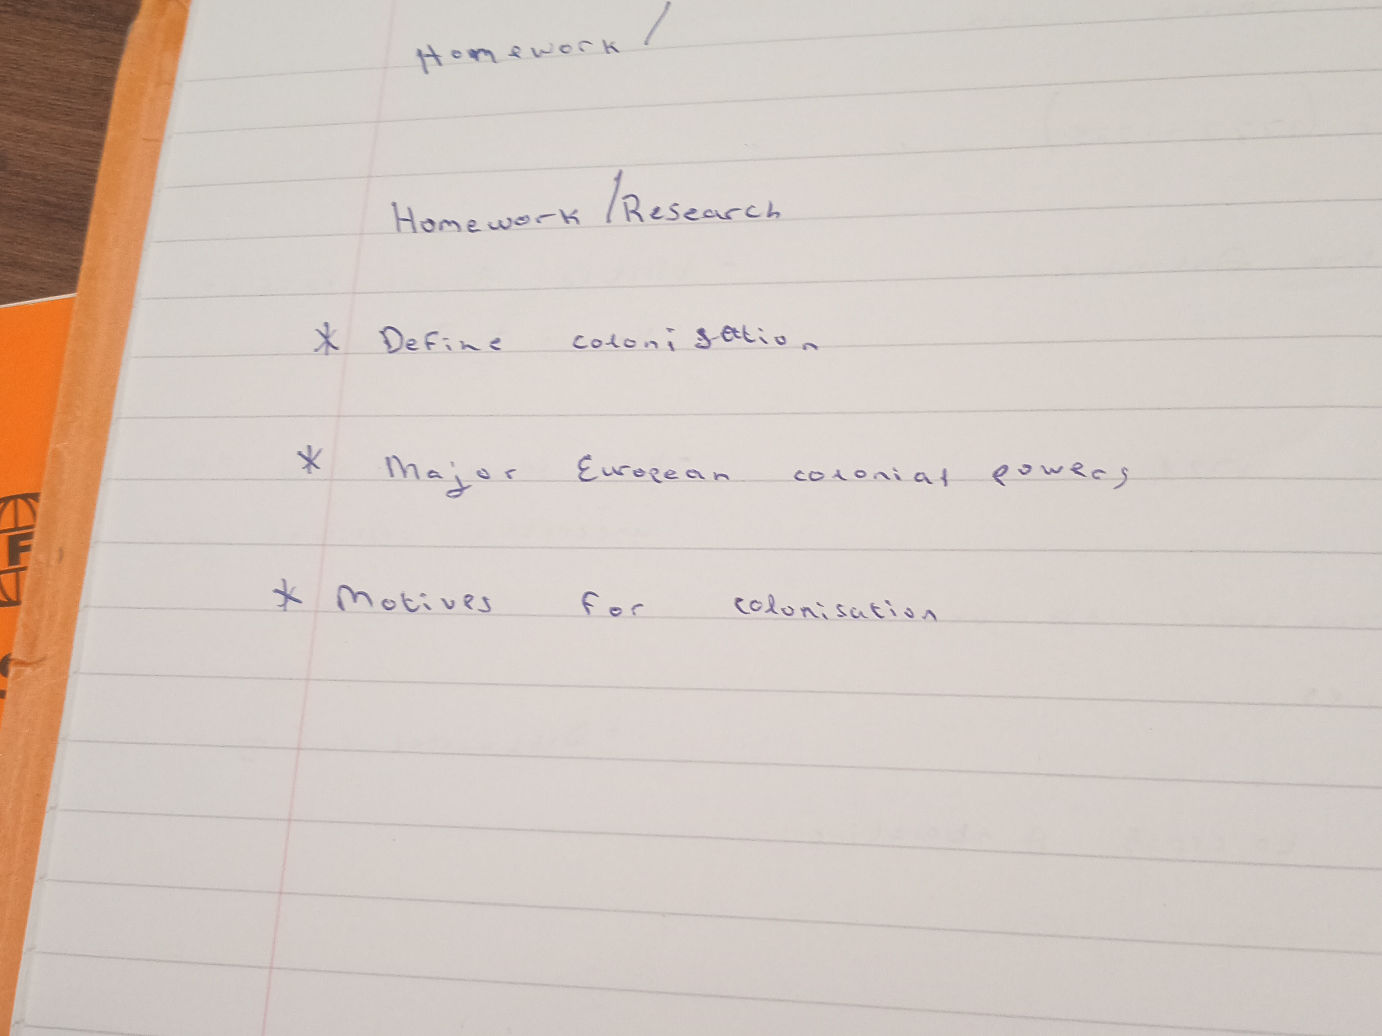 Homework /
Homework / Research
* Define colonisation
* Major European colonial powers
* Motives for colonisation
F